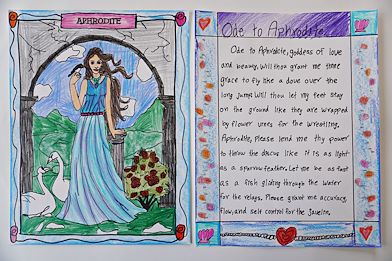 APHRODITE
Ode to Aphrodite
Ode to Aphrodite, goddess of love
and beauty. Will thou grant me thine
grace to fly like a dove over the
long jump? Will thou let my feet stay
on the ground like they are wrapped
by flower vines for the wrestling.
Aphrodite, Please lend me thy power
to throw the discus like it is as light
as a sparrow feather. Let me be as fast
as a fish gliding through the water
for the relays. Please grant me accuracy,
flow, and self control for the javelin.